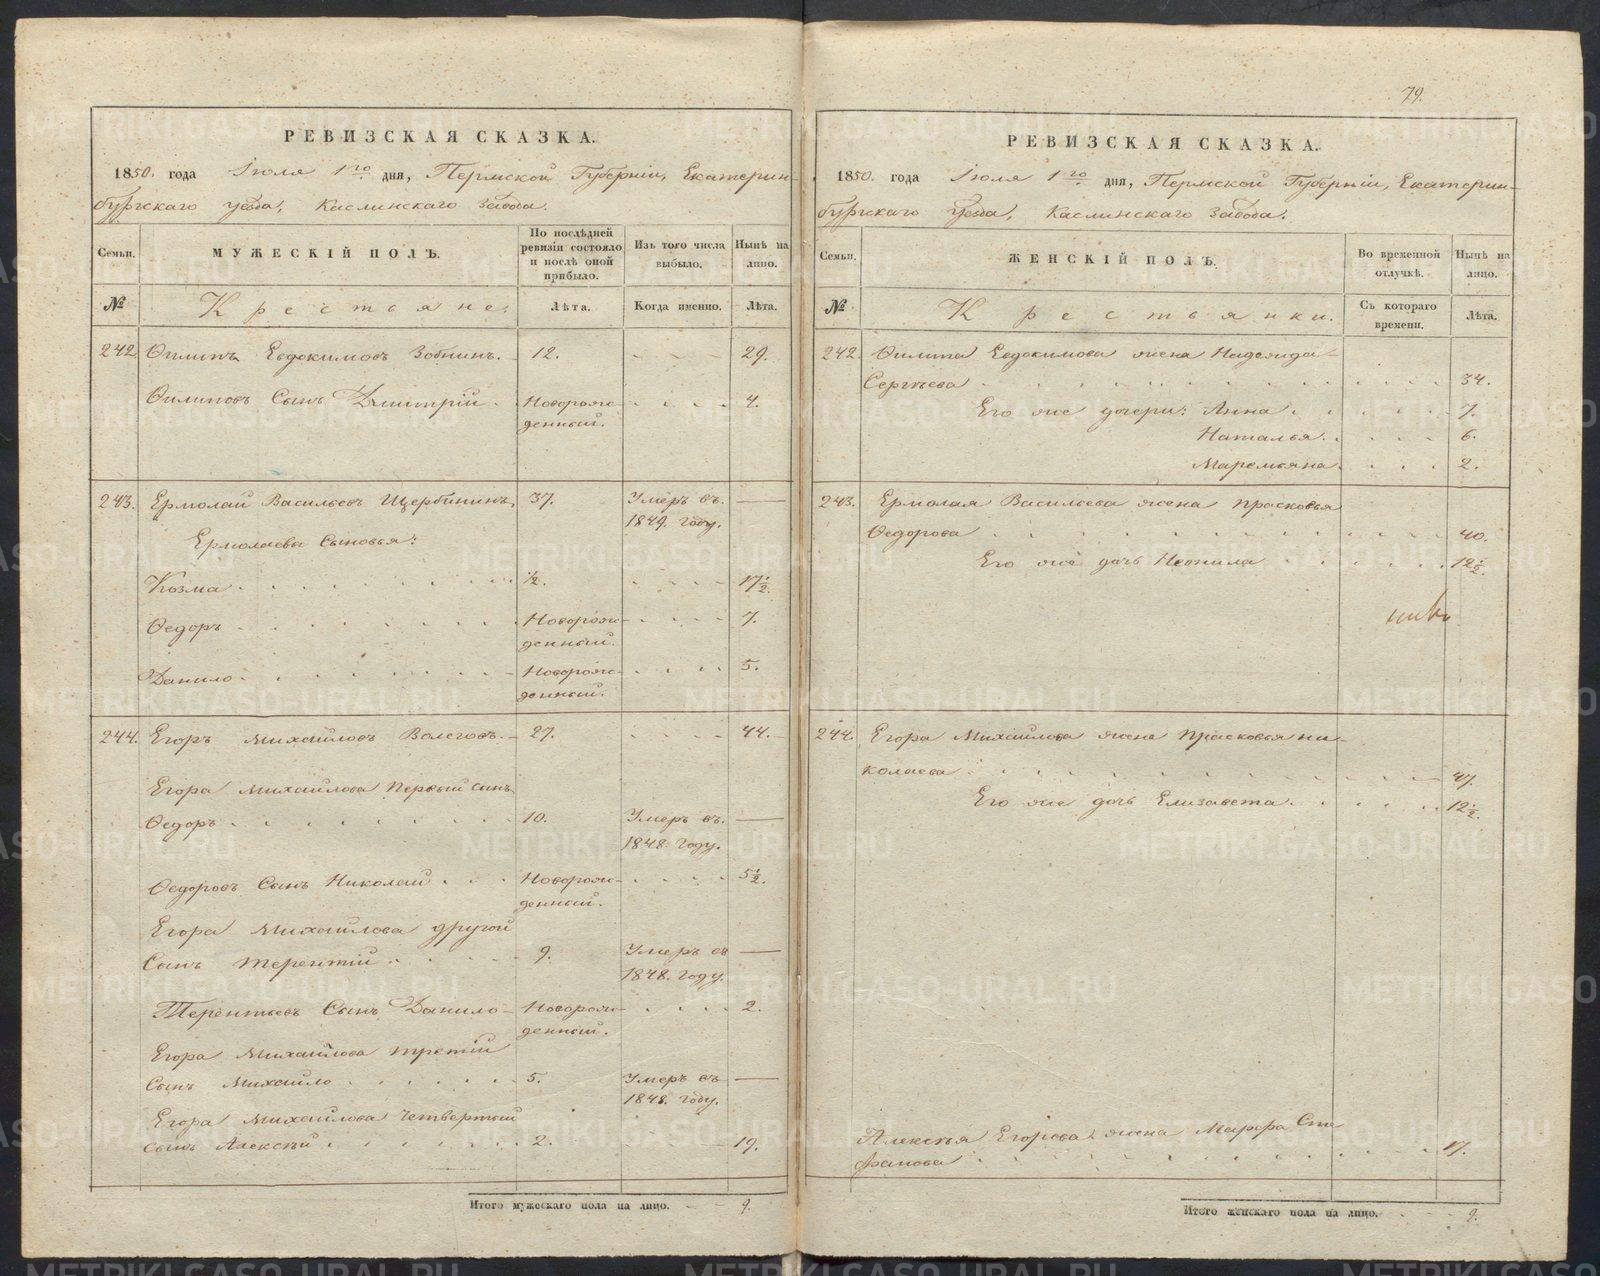 79.
РЕВИЗСКАЯ СКАЗКА.
1850. года Іюля 1го дня, Пермской Губерніи, Екатерин-
бургскаго уезда, Каслинскаго Завода.
Семьи.
МУЖЕСКІЙ ПОЛЪ.
По послѣдней ревизіи состояло и послѣ оной прибыло.
Изъ того числа выбыло.
Нынѣ на лицо.
№
Крестьяне.
Лѣта.
Когда именно.
Лѣта.
242. Филипъ Евдокимовъ Зобнинъ. 12. 29.
Филиповъ Сынъ Дмитрій Новорож- 4.
денный.
243. Ермолай Васильевъ Щербининъ, 37. Умеръ въ —
1849. году.
Ермолаевы Сыновья:
Козма ½. 17½.
Ѳедоръ Новорож- 7.
денный.
Данило Новорож- 5.
денный.
244. Егоръ Михайловъ Волеговъ. 27. 44.
Егора Михайлова Первый Сынъ
Ѳедоръ 10. Умеръ въ. —
1848. году.
Ѳедоровъ Сынъ Николай Новорож- 5½.
денный.
Егора Михайлова другой
Сынъ Терентій 9. Умеръ въ —
1848. году.
Терентьевъ Сынъ Данило Новорож- 2.
денный.
Егора Михайлова третій
Сынъ Михайло 5. Умеръ въ —
1848. году.
Егора Михайлова Четвертый
Сынъ Алексѣй 2. 19.
Итого мужескаго пола на лицо. 9.
РЕВИЗСКАЯ СКАЗКА.
1850. года Іюля 1го дня, Пермской Губерніи, Екатерин-
бургскаго уезда, Каслинскаго Завода.
Семьи.
ЖЕНСКІЙ ПОЛЪ.
Во временной отлучкѣ.
Нынѣ на лицо.
№
Крестьянки.
Съ котораго времени.
Лѣта.
242. Филипа Евдокимова жена Надежда
Сергѣева 34.
Его же дочери: Анна 7.
Наталья 6.
Маремьяна 2.
243. Ермолая Васильева жена Прасковья
Ѳедорова 40.
Его же дочь Неонила 12½.
244. Егора Михайлова жена Прасковья Ни-
колаева 47.
Его же дочь Елизавета 12½.
Алексѣя Егорова жена Марфа Сте
фанова 17.
Итого женскаго пола на лицо. 9.
METRIKI.GASO-URAL.RU